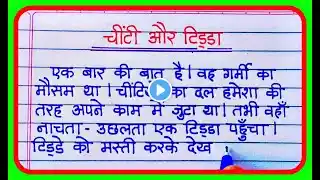 चींटी और टिड्डा
एक बार की बात है। वह गर्मी का
मौसम था। का दल हमेशा की
तरह अपने काम में जुटा था। तभी वहाँ
नाचता - उछलता एक टिड्डा पहुँचा।
टिड्डे को मस्ती करके देख